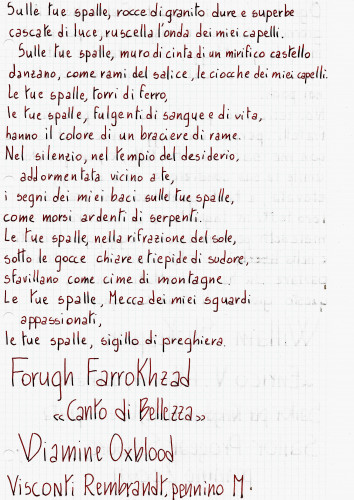 Sulle tue spalle, rocce di granito dure e superbe
cascate di luce, ruscella l'onda dei miei capelli.
Sulle tue spalle, muro di cinta di un mirifico castello
danzano, come rami del salice, le ciocche dei miei capelli.
Le tue spalle, torri di ferro,
le tue spalle, fulgenti di sangue e di vita,
hanno il colore di un braciere di rame.
Nel silenzio, nel tempio del desiderio,
addormentata vicino a te,
i segni dei miei baci sulle tue spalle,
come morsi ardenti di serpenti.
Le tue spalle, nella rifrazione del sole,
sotto le gocce chiare e tiepide di sudore,
sfavillano come cime di montagne.
Le tue spalle, Mecca dei miei sguardi
appassionati,
le tue spalle, sigillo di preghiera.
Forugh Farrokhzad
«Canto di Bellezza»
Diamine Oxblood
Visconti Rembrandt, pennino M.